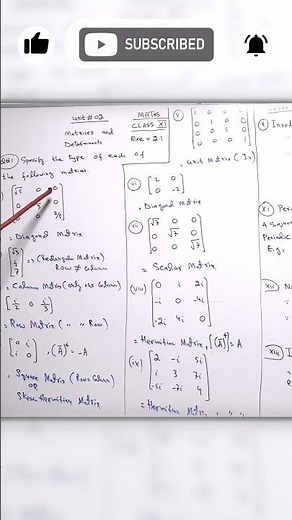 SUBSCRIBED
Unit # 02
Matrices and
Determinants
MATHS
CLASS XI
Exe = 2.1
Specify the type of each of
the following matrices.
√5 0 0
0 0
0 0
= Diagonal Matrix
⇒ (Rectangular Matrix)
Row ≠ Column
= Column Matrix (only one Column)
[i/2 0 i/3]
= Row Matrix ( " " Row)
[0 i
i 0] , (Ā)ᵗ = -A
, Square Matrix (Row=Column)
OR
Skew Hermitian Matrix
v
[1 0 0 0
0 1 0 0
0 0 1 0
0 0 0 1]
= Unit Matrix (In)
vi [2 0
0 -2]
= Diagonal Matrix
vii [√7 0 0
0 √7 0
0 0 √7]
= Scalar Matrix
viii [0 i 2i
-i 0 -4i
-2i 4i 0]
= Hermitian Matrix, [(Ā)ᵗ] = A
ix [2 -i 5i
i 3 7i
-5i -7i 4]
= Hermitian Matrix, " "
xi
Periodic
E.g.,
xii
xiii